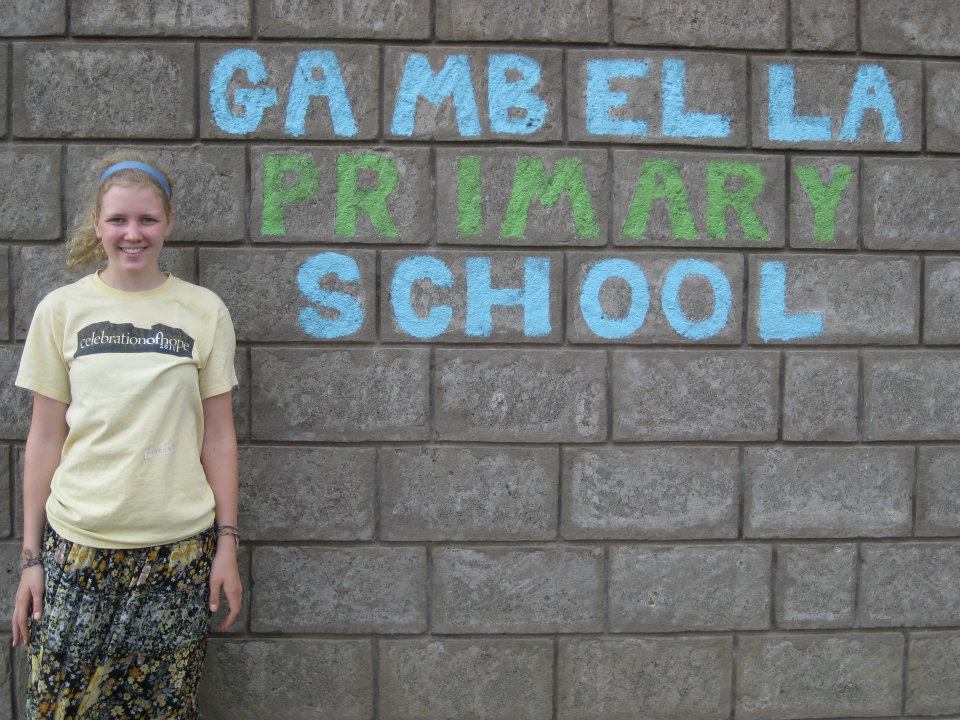 GAMBELLA
PRIMARY
SCHOOL
celebrationofhope
2011